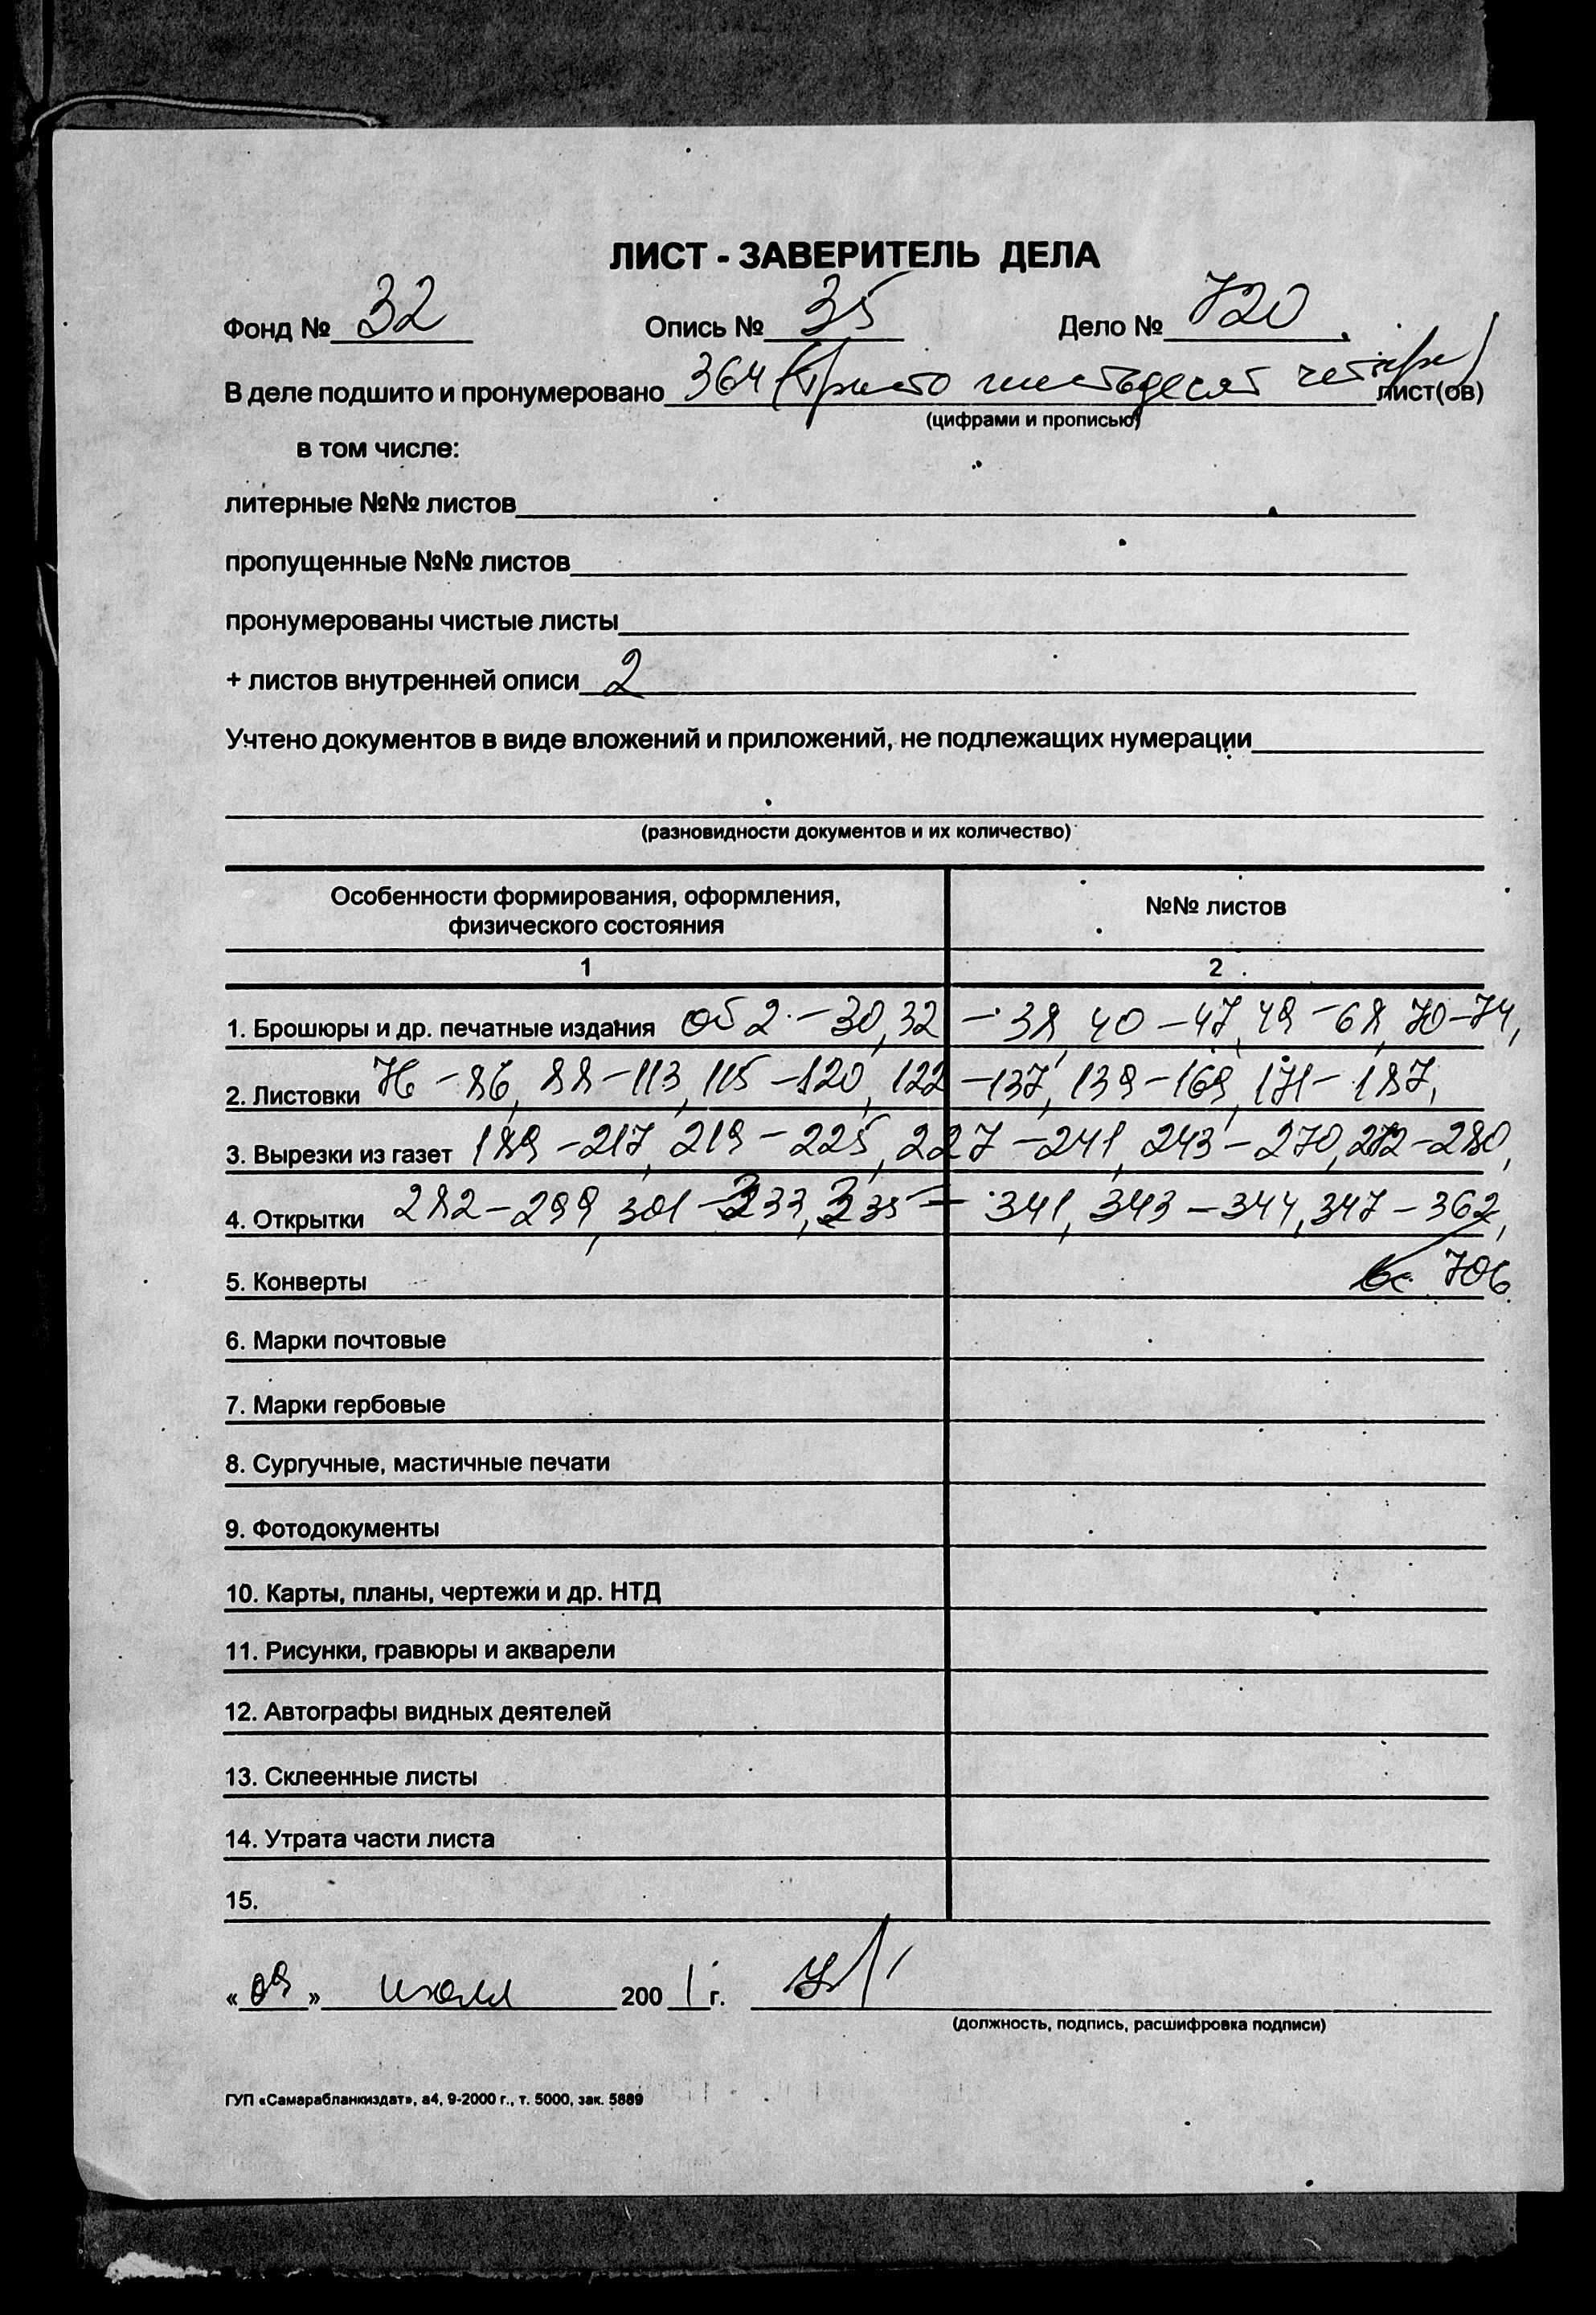 ЛИСТ - ЗАВЕРИТЕЛЬ ДЕЛА
Фонд № 32 Опись № 35 Дело № 720
В деле подшито и пронумеровано 364 (триста шестьдесят четыре) лист(ов)
(цифрами и прописью)
в том числе:
литерные №№ листов
пропущенные №№ листов
пронумерованы чистые листы
+ листов внутренней описи 2
Учтено документов в виде вложений и приложений, не подлежащих нумерации
(разновидности документов и их количество)
Особенности формирования, оформления, №№ листов
физического состояния
1 2
1. Брошюры и др. печатные издания об 2 - 30, 32 - 38, 40 - 47, 49 - 68, 70 - 74,
2. Листовки 76 - 86, 88 - 113, 115 - 120, 122 - 137, 139 - 169, 171 - 187,
3. Вырезки из газет 189 - 217, 219 - 225, 227 - 241, 243 - 270, 272 - 280,
4. Открытки 282 - 299, 301 - 333, 335 - 341, 343 - 344, 347 - 362,
5. Конверты 706
6. Марки почтовые
7. Марки гербовые
8. Сургучные, мастичные печати
9. Фотодокументы
10. Карты, планы, чертежи и др. НТД
11. Рисунки, гравюры и акварели
12. Автографы видных деятелей
13. Склеенные листы
14. Утрата части листа
15.
« 09 » июля 2001 г.
(должность, подпись, расшифровка подписи)
ГУП «Самарабланкиздат», а4, 9-2000 г., т. 5000, зак. 5889